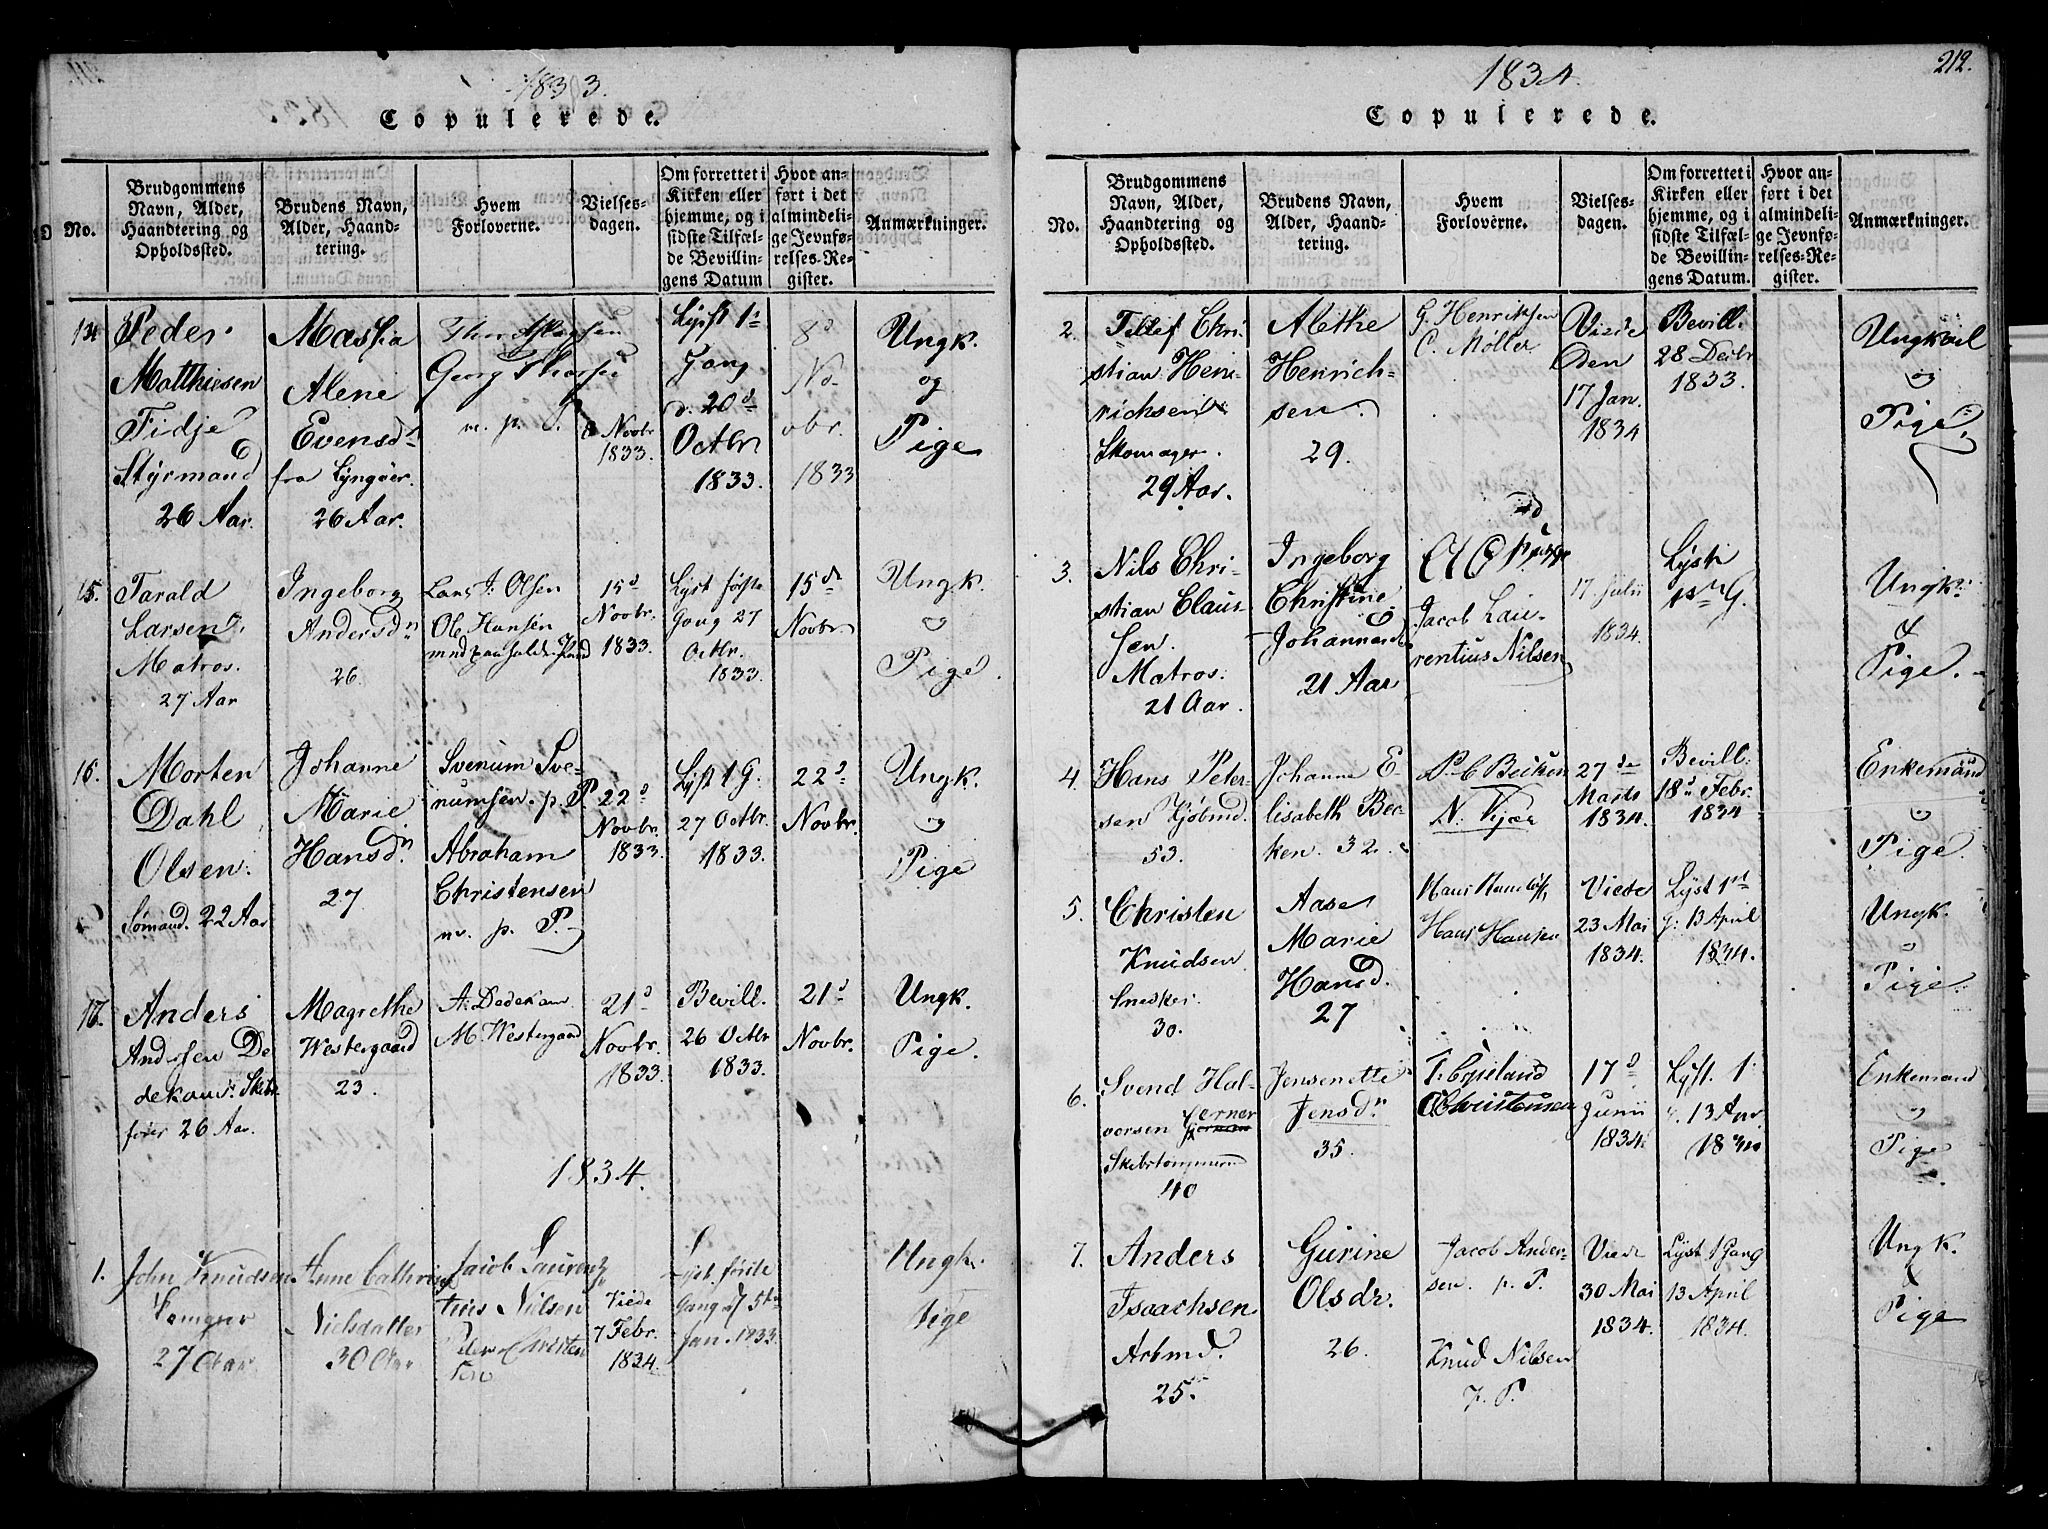 1833.
Copulerede.
No.
Brudgommens
Navn, Alder,
Haandtering og
Opholdssted.
Brudens Navn,
Alder, Haand-
tering.
Hvem
Forloverne.
Vielses-
dagen.
Om forrettet i
Kirken eller
hjemme, og i
sidste Tilfæl-
de Bevillin-
gens Datum
Hvor an-
ført i det
almindeli-
ge Jevnfø-
relses-Re-
gister.
Anmærkninger.
14
Peder
Matthiesen
Fidje
Styrmand
26 Aar.
Alene
Evensdr
fra Lyngøer.
26 Aar.
m. p. P.
8 Novbr
1833.
Lyst 1s
Gang
d. 20d
Octbr
1833.
8d
No-
vbr.
1833
Ungk.
og
Pige
15.
Tarald
Larsen
Matros.
27 Aar
Ingeborg
Andersdn
26.
Lars J. Olsen
Ole Hansen
15d
Novbr.
1833.
Lyst første
Gang 27
Octbr.
1833.
15de
Novbr
Ungk.
Pige.
16.
Morten
Dahl
Olsen.
Sømand. 22 Aar
Johanne
Marie
Hansdn
27
Svenum Sve-
numsen. p. P.
Abraham
Christensen
m. p. P.
22d
Novbr.
1833.
Lyst 1 G.
27 Octbr.
1833.
22d
Novbr.
Ungk.
Pige
17.
Anders
Andersen De
dekam: Skibs
fører 26 Aar.
Magrethe
Westergaard
23.
A: Dedekam
M. Westergaard
21d
Novbr.
1833.
Bevill.
26 Octbr
1833.
21d
Novbr.
Ungk.
Pige.
1834.
1.
John Knudsen
27 Aar
Anne Cathrine
Nielsdatter
30 Aar
Jacob Laurenz
tius Nilsen
Peder Christen
sen
Viede
7 Febr.
1834.
Lyst første
Gang d 5te
Jan. 1833.
Ungk.
Pige
1834.
212.
Copulerede.
No.
Brudgommens
Navn, Alder,
Haandtering og
Opholdssted.
Brudens Navn,
Alder, Haand-
tering.
Hvem
Forloverne.
Vielses-
dagen.
Om forrettet i
Kirken eller
hjemme, og i
sidste Tilfæl-
de Bevillin-
gens Datum.
Hvor an-
ført i det
almindeli-
ge Jevnfø-
relses-Re-
gister.
Anmærkninger.
2.
Tellef Chri
stian Hen-
richsen
Skomager.
29 Aar.
Alethe
Henrich-
sen.
29.
G. Henriksen
C. Møller
Viede
Den
17 Jan.
1834
Bevill.
28 Decbr
1833.
Ungkarl
Pige.
3.
Nils Chri-
stian Claus-
sen.
Matros.
21 Aar.
Ingeborg
Christine
Johannesd
21 Aar
Jacob Lau-
rentius Nilsen
17 Julii
1834.
Lyste
1ste G.
Ungk.
&
Pige.
4
Hans Peter-
sen Kjøbmd.
53.
Johanne E
lisabeth Bec-
ken. 32.
P. C. Becken
N. Kjær
27de
Marts
1834.
Bevill.
18d Febr.
1834
Enkemand
Pige.
5.
Christen
Knudsen
Snedker.
30.
Aase
Marie
Hansd.
27
Hans Hansen
Viede
23 Mai
1834.
Lyst 1ste
G: 13 April
1834.
Ungk.
Pige.
6.
Svend Hal-
vorsen
Skibstømmermd
40
Jensenette
Jensdn
35.
Christensen
17d
Junii
1834.
Lyst. 1
13 Apr
1834
Enkemand
Pige
7.
Anders
Isaachsen
Arbmd.
25.
Gurine
Olsdr.
26.
Jacob Ander-
sen. p. P.
Knud Nilsen
p. P.
Viede
30 Mai
1834.
Lyst 1 Gang
13 April
1834.
Ungk.
&
Pige